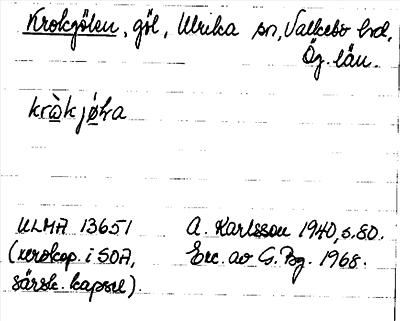 Krokgölen, göl, Ulrika sn, Valkebo hd,
Ög. län.
kròkjǿḷa
ULMA 13651
(xerokop. i SOA,
särsk. kapsel).
A. Karlsson 1940, s. 80.
Exc. av G. Bg. 1968.